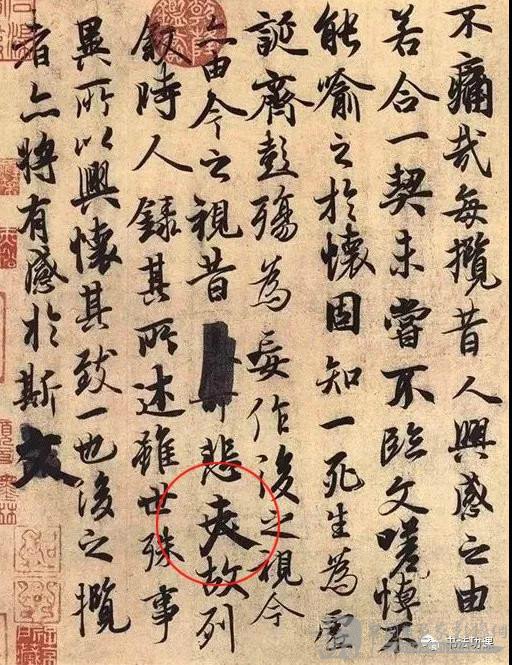 不痛哉每攬昔人興感之由
若合一契未嘗不臨文嗟悼不
能喻之於懷固知一死生為虛
誕齊彭殤為妄作後之視今
亦由今之視昔悲夫故列
叙時人錄其所述雖世殊事
異所以興懷其致一也後之攬
者亦將有感於斯文
书法功课